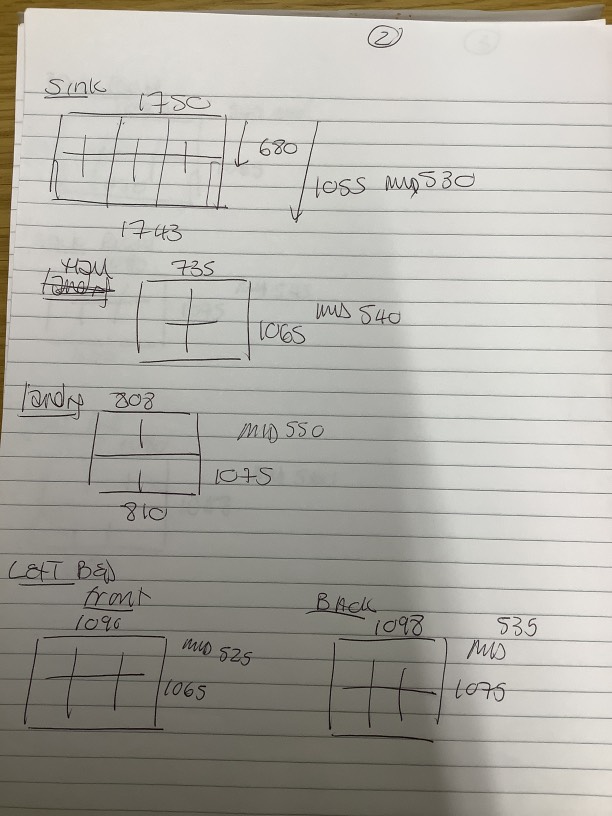 2
Sink
1750
680
1055 MID 530
1743
735
MID 540
1065
landg
808
MID 550
1075
810
LEFT BED
front
1096
MID 525
1065
BACK
1098
535
MID
1075